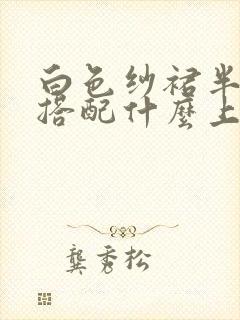 白色纱裙半
搭配什麼上
龚秀松